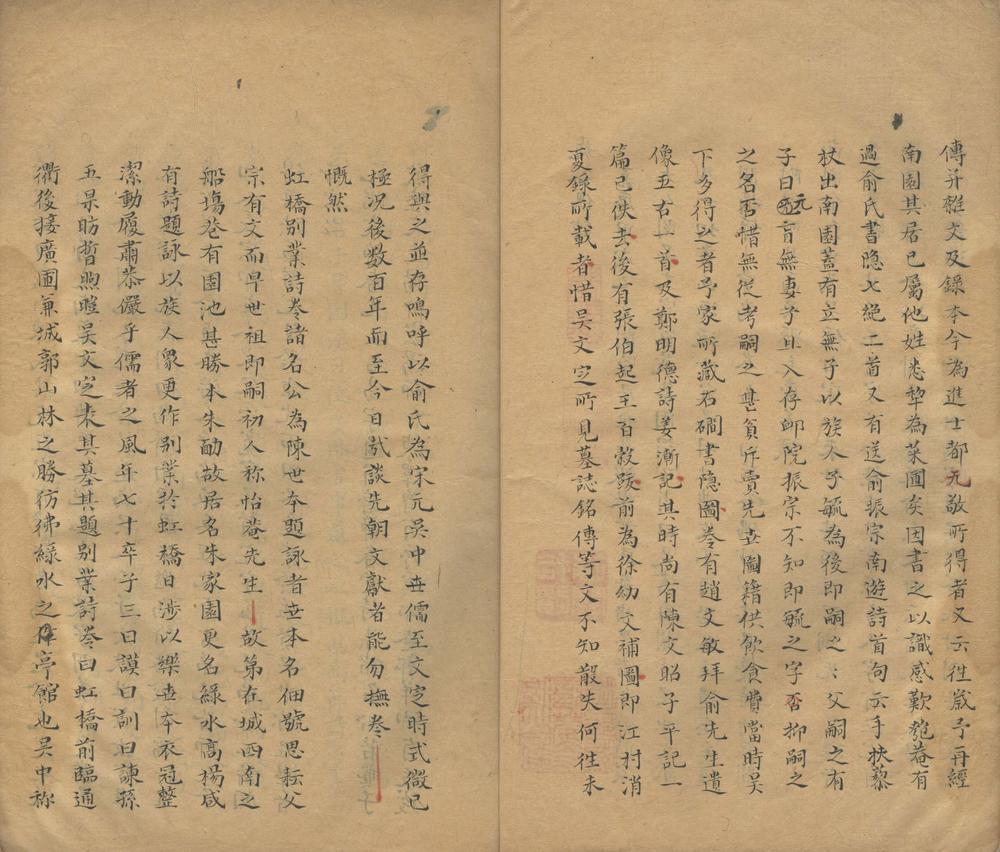 傳并雜文及錄本今為進士都元敬所得者又云徃嵗予再經
南園其居已屬他姓悉犂為菜圃矣因書之以識感歎匏菴有
過俞氏書隐七絶二首又有送俞振宗南遊詩首句云手扶藜
杖出南園蓋有立無子以族人子毓為後即嗣之〻父嗣之有
子曰元盲無妻子且入存䘏院振宗不知即毓之字否抑嗣之
之名否惜無從考嗣之甚貧斥賣先世圖籍供飲食費當時吴
下多得之者予家所藏石磵書隐圖卷有趙文敏拜俞先生遺
像五古一首及鄭明德詩姜漸記其時尚有陳文昭子平記一
篇已佚去後有張伯起王百穀䟦前為徐幼文補圖即江村消
夏錄所載者惜吴文定所見墓誌銘傳等文不知散失何徃未
得與之並存嗚呼以俞氏為宋元吴中世儒至文定時式微已
極况後数百年而至今日㢤談先朝文獻者能勿撫卷
慨然
虹橋别業詩卷諸名公為陳世本題詠者世本名佃號思耘父
宗有文而早世祖即嗣初人称怡菴先生故第在城西南之
船塲巷有園池甚勝本朱勔故居名朱家園更名緑水高楊咸
有詩題詠以族人衆更作别業於虹橋日涉以樂世本衣冠整
潔動履肅恭儼乎儒者之風年七十卒子三曰謨曰訓曰諫孫
五杲昉晢煦暟吴文定表其墓其題别業詩卷曰虹橋前臨通
衢後接廣圃兼城郭山林之勝彷彿緑水之亭館也吴中称